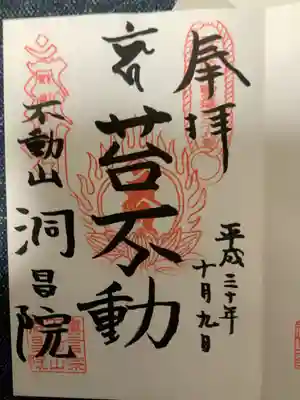 奉拝
平成三十年
十月九日
苔不動
不動山
洞昌院